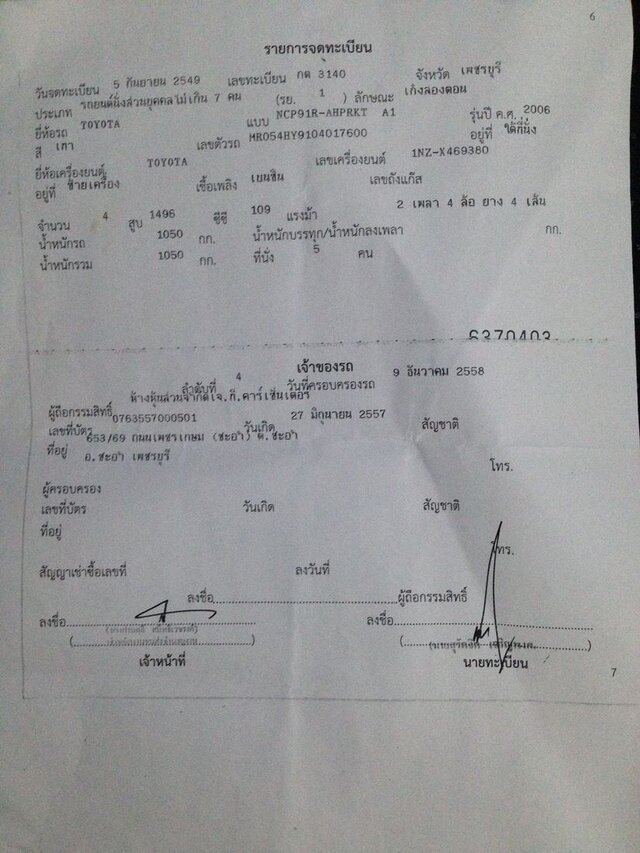 6
รายการจดทะเบียน
วันจดทะเบียน 5 กันยายน 2549 เลขทะเบียน กต 3140 จังหวัด เพชรบุรี
ประเภท รถยนต์นั่งส่วนบุคคลไม่เกิน 7 คน (รย. 1 ) ลักษณะ เก๋งสองตอน
ยี่ห้อรถ TOYOTA แบบ NCP91R-AHPRKT A1 รุ่นปี ค.ศ. 2006
สี เทา เลขตัวรถ MR054HY9104017600 อยู่ที่ ใต้ที่นั่ง
ยี่ห้อเครื่องยนต์ TOYOTA เลขเครื่องยนต์ 1NZ-X469380
อยู่ที่ ซ้ายเครื่อง เชื้อเพลิง เบนซิน เลขถังแก๊ส
จำนวน 4 สูบ 1496 ซีซี 109 แรงม้า 2 เพลา 4 ล้อ ยาง 4 เส้น
น้ำหนักรถ 1050 กก. น้ำหนักบรรทุก/น้ำหนักลงเพลา กก.
น้ำหนักรวม 1050 กก. ที่นั่ง 5 คน
6370403
เจ้าของรถ
ลำดับที่ 4 วันที่ครอบครองรถ 9 ธันวาคม 2558
ผู้ถือกรรมสิทธิ์ ห้างหุ้นส่วนจำกัดเจ.ที.คาร์เซ็นเตอร์
เลขที่บัตร 0763557000501 วันเกิด 27 มิถุนายน 2557 สัญชาติ
ที่อยู่ 653/69 ถนนเพชรเกษม (ชะอำ) ต.ชะอำ
อ.ชะอำ เพชรบุรี
โทร.
ผู้ครอบครอง
เลขที่บัตร วันเกิด สัญชาติ
ที่อยู่
โทร.
สัญญาเช่าซื้อเลขที่ ลงวันที่
ลงชื่อ ผู้ถือกรรมสิทธิ์
ลงชื่อ ลงชื่อ
เจ้าหน้าที่ นายทะเบียน
7